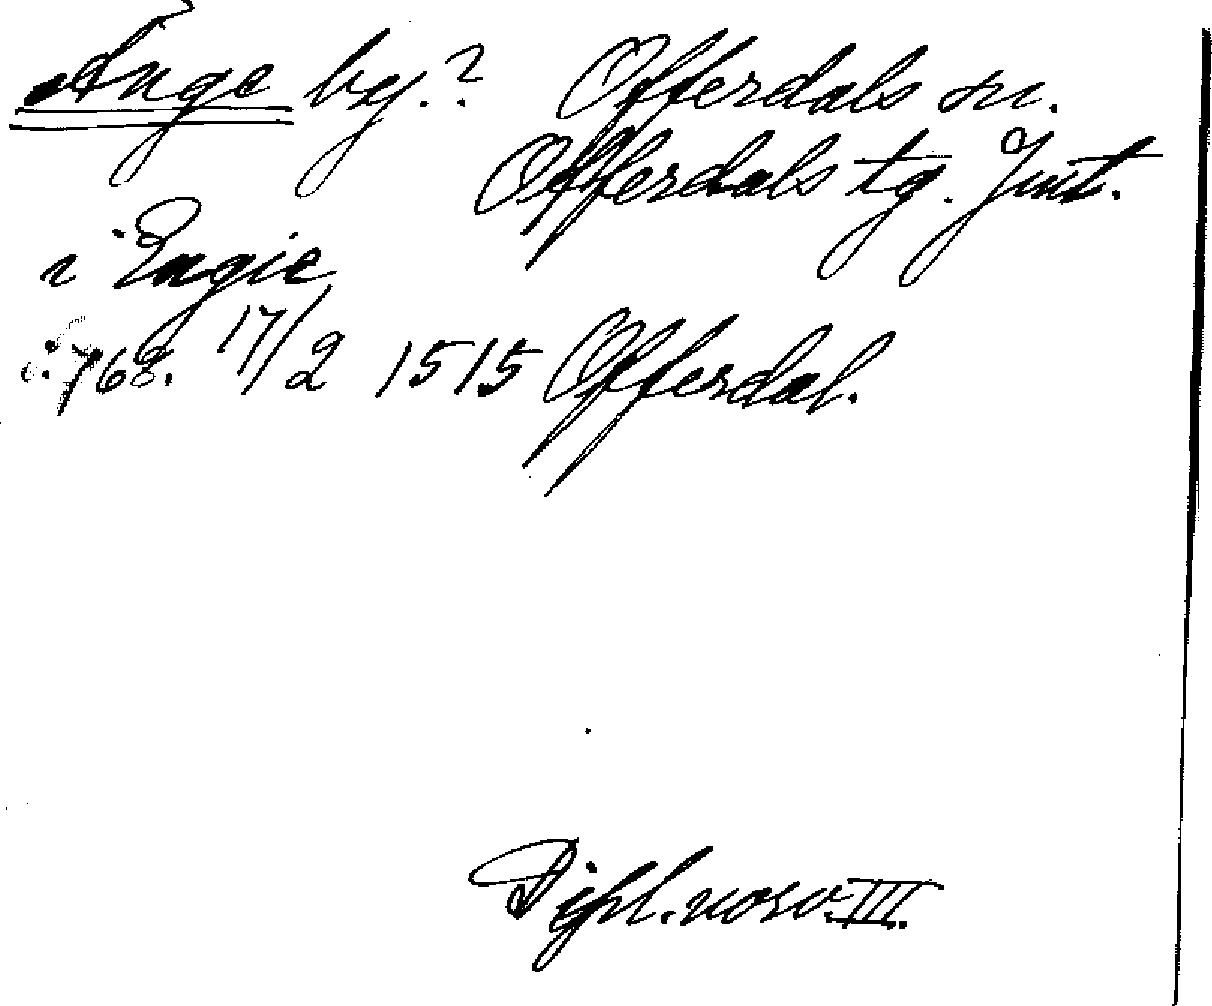 Ånge by.? Offerdals sn.
Offerdals tg. Jmt.
i Engie
s. 768. 17/2 1515 Offerdal.
Dipl. norv. III.